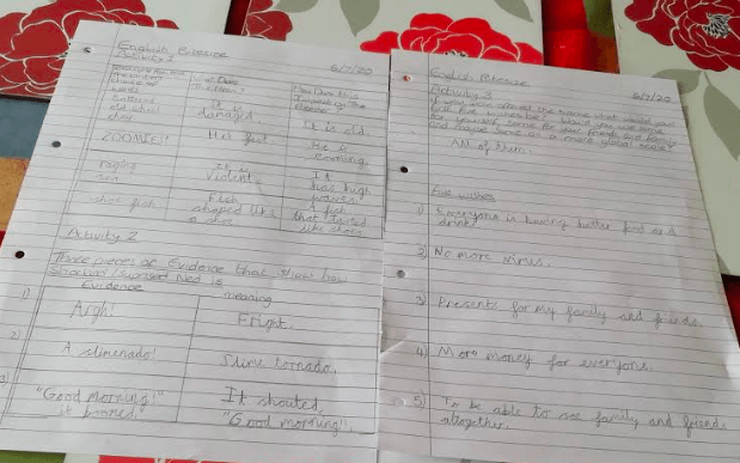 English Bitesize 6/7/20
Activity 1
Example for the writer's choice of words | What Does This Mean? | How Does this Impact on The Reader
Battered old wheel chair | It is damaged. | It is old.
ZOOMIES! | He's fast. | He is coming.
raging sea | It is violent. | It has high waves.
shoe fish | Fish shaped like a shoe. | A fish that tasted like shoes.
Activity 2
Three pieces of Evidence that show how
shocked/suprised Ned is
Evidence meaning
1) Argh! Fright.
2) A slimenado! Slime tornado.
3) "Good morning!" it boomed. It shouted, "Good morning!".
English Bitesize 6/7/20
Activity 3
If you were offered the same what would your
five wishes be? Would you use some
for yourself, some for your friends and family
and maybe some on a more global scale?
All of them.
Five wishes
1) Everyone is having better food and
drink.
2) No more virus.
3) Presents for my family and friends.
4) More money for everyone.
5) To be able to see family and friends
altogether.